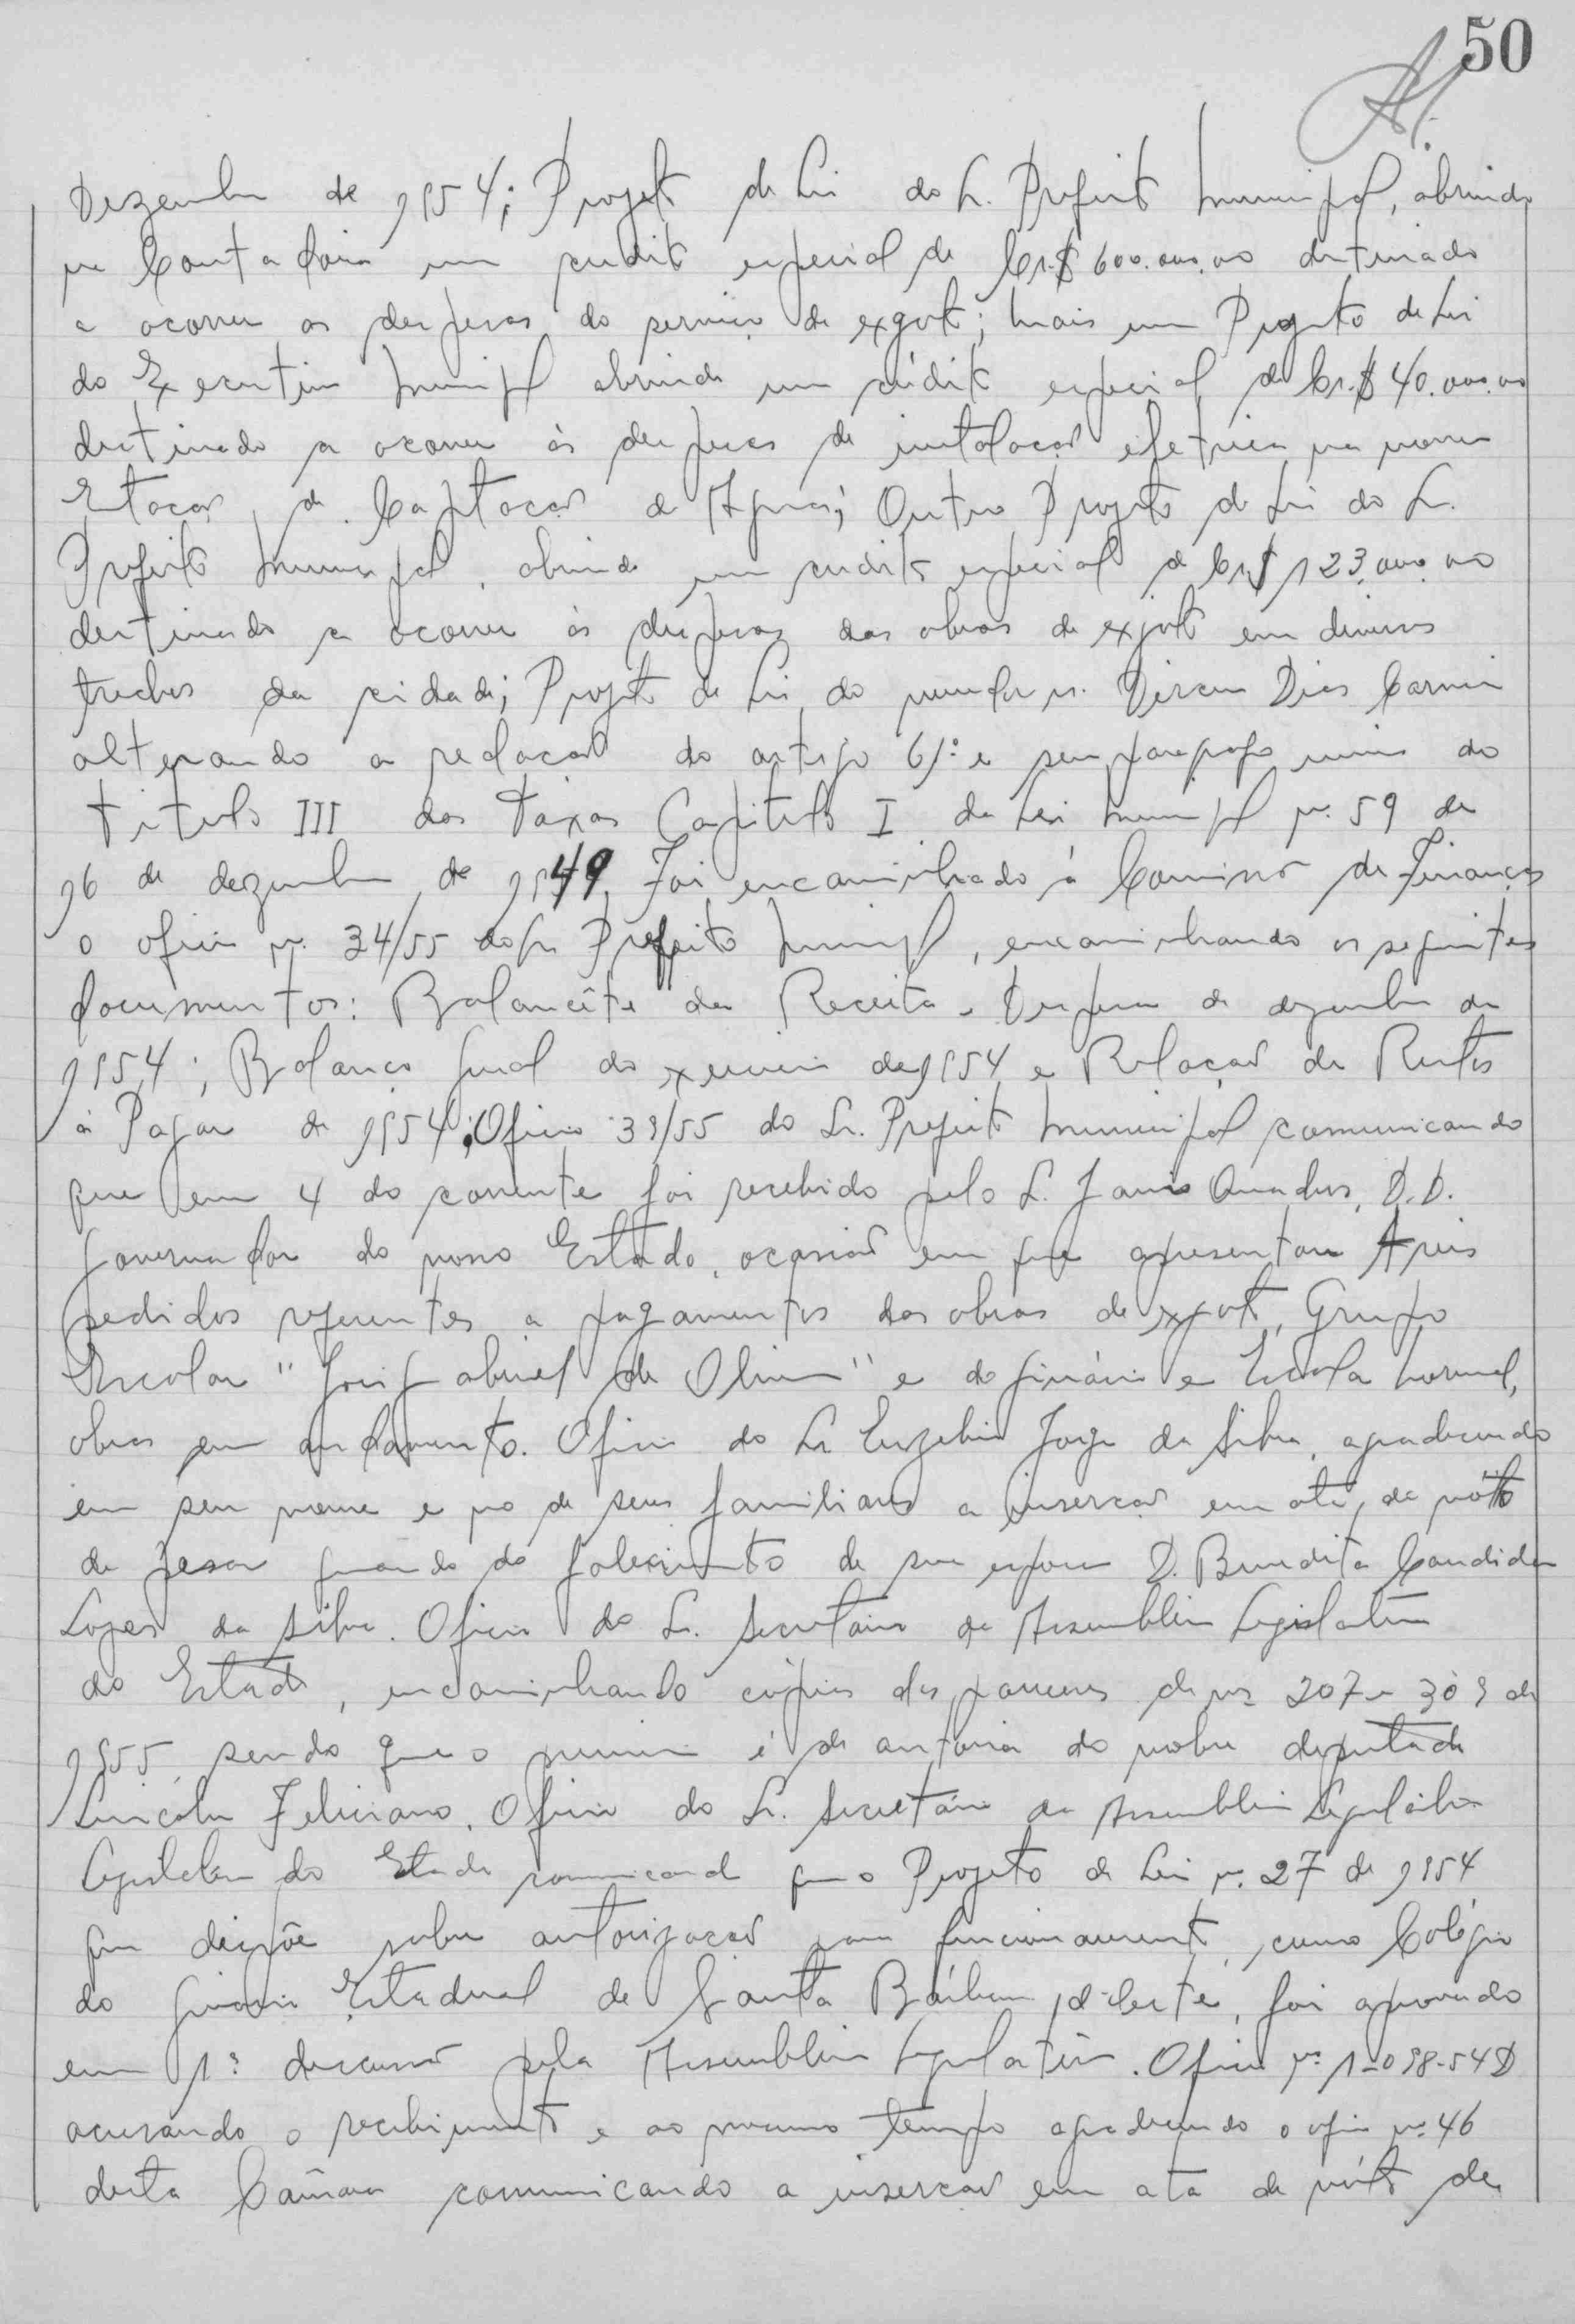 50
Dezembro de 1954; Projeto de Lei do Sr. Prefeito Municipal, abrindo
na Contadoria um credito especial de Cr.$ 600.000,00 destinado
a ocorrer as despesas do serviço de exgoto; Mais um Projeto de Lei
do Executivo Municipal abrindo um crédito especial de Cr.$ 40.000,00
destinado a ocorrer às despesas de instalação eletrica na nova
Estação de Captação de Aguas; Outro Projeto de Lei do Sr.
Prefeito Municipal, abrindo um credito especial de Cr$ 123.000,00
destinado a ocorrer às despesas das obras de exgoto em diversos
trechos da cidade; Projeto de Lei do vereador sr. Dirceu Dias Carneiro
alterando a redação do artigo 61º e seu paragrafo unico do
Titulo III das Taxas Capitulo I da Lei Municipal nº 59 de
16 de dezembro de 1949. Foi encaminhado á Comissão de Finanças
o oficio nº 34/55 do Sr. Prefeito Municipal, encaminhando os seguintes
documentos: Balancête da Receita e Despesa de dezembro de
1954; Balanço Geral do exercicio de 1954 e Relação de Restos
á Pagar de 1954; Oficio 39/55 do Sr. Prefeito Municipal comunicando
que em 4 do corrente foi recebido pelo Sr. Janio Quadros, D.D.
Governador do nosso Estado, ocasião em que apresentou
pedidos referentes a pagamentos das obras de exgoto, Grupo
Escolar "José Gabriel de Oliveira" e do ginásio e Escola Normal,
obras em andamento. Oficio do Sr. Euzebio Jorge da Silva, agradecendo
em seu nome e no de seus familiares a inserção em ata, de vóto
de pesar quando do falecimento de sua esposa D. Benedita Candida
Lopes da Silva. Oficio do Sr. Secretario da Assembléia Legislativa
do Estado, encaminhando cópias dos pareceres de nos 207 e 309 de
1955, sendo que o primeiro é de autoria do nobre deputado
Lincoln Feliciano. Oficio do Sr. Secretário da Assembléia Legislativa
Legislativa do Estado comunicando que o Projeto de Lei nº 27 de 1954
que dispõe sobre autorização para funcionamento, como Colégio
do Ginasio Estadual de Santa Bárbara d'Oeste, foi aprovado
em 1ª discussão pela Assembléia Legislativa. Oficio nº 1-098-54D
acusando o recebimento e ao mesmo tempo agradecendo o oficio nº 46
desta Câmara comunicando a inserção em ata de vóto de